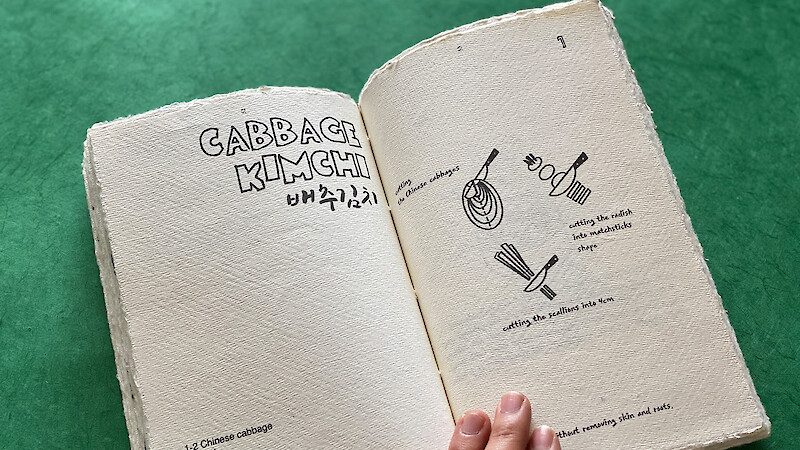 CABBAGE
KIMCHI
배추김치
1-2 Chinese cabbage
1
cutting
the Chinese cabbages
cutting the radish
into matchsticks
shape
cutting the scallions into 4cm
without removing skin and roots.